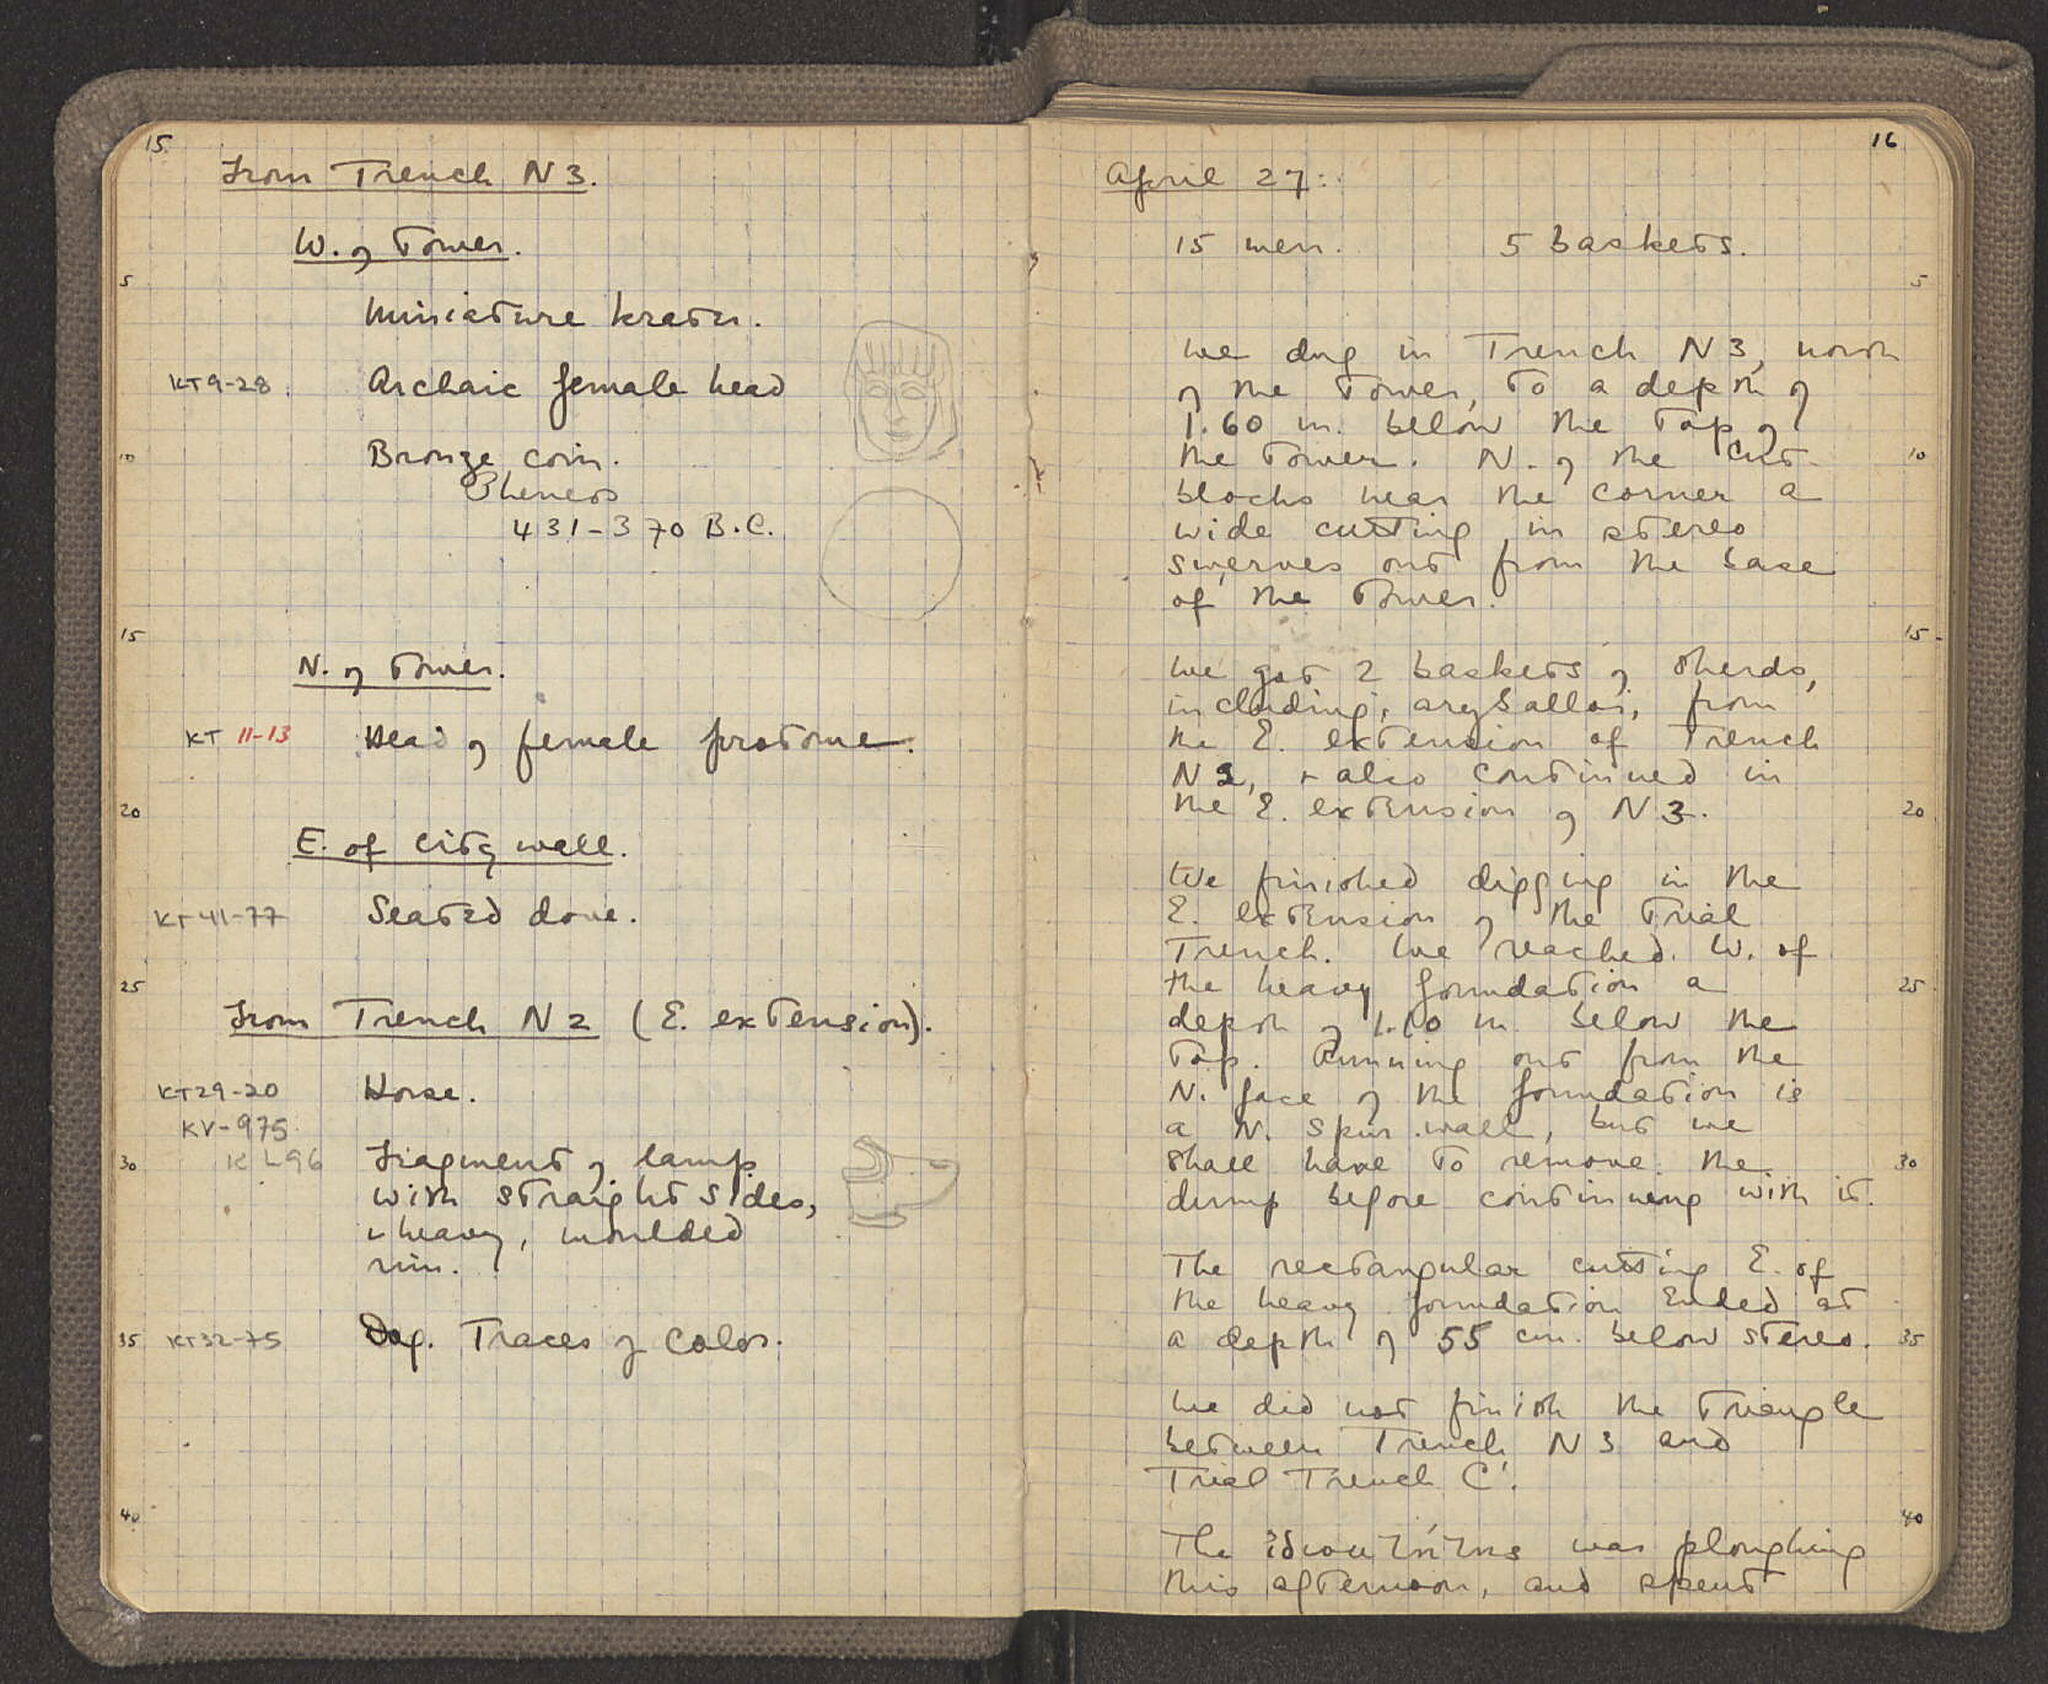 15.
From Trench N3.
W. of Tower.
5
Miniature krater.
KT9-28. Archaic female head
10 Bronze coin.
Pheneos
431-370 B.C.
15
N. of Tower.
KT 11-13 Head of female protome.
20
E. of City wall.
KT41-77 Seated dove.
25
From Trench N2 (E. extension).
KT29-20 Horse.
KV-975.
30 KL96 Fragment of lamp
with straight sides,
+ heavy, moulded
rim.
35 KT32-75 Dog. Traces of color.
40
16
April 27:
15 men. 5 baskets.
5
We dug in Trench N3, north
of the Tower, to a depth of
1.60 m. below the top of
the Tower. N. of the cut 10
blocks near the corner a
wide cutting in stereo
swerves out from the base
of the Tower.
15
We got 2 baskets of sherds,
including aryballoi, from
the E. extension of Trench
N2, + also continued in
the E. extension of N3. 20
We finished digging in the
E. extension of the Trial
Trench. We reached W. of
the heavy foundation a 25
depth of 1.10 m below the
top. Running out from the
N. face of the foundation is
a N. spur wall, but we
shall have to remove the 30
dump before continuing with it.
The rectangular cutting E. of
the heavy foundation ended at
a depth of 55 cm. below stereo. 35
We did not finish the triangle
between Trench N3 and
Trial Trench C'.
40
The ἰδιοκτήτης was ploughing
this afternoon, and spent